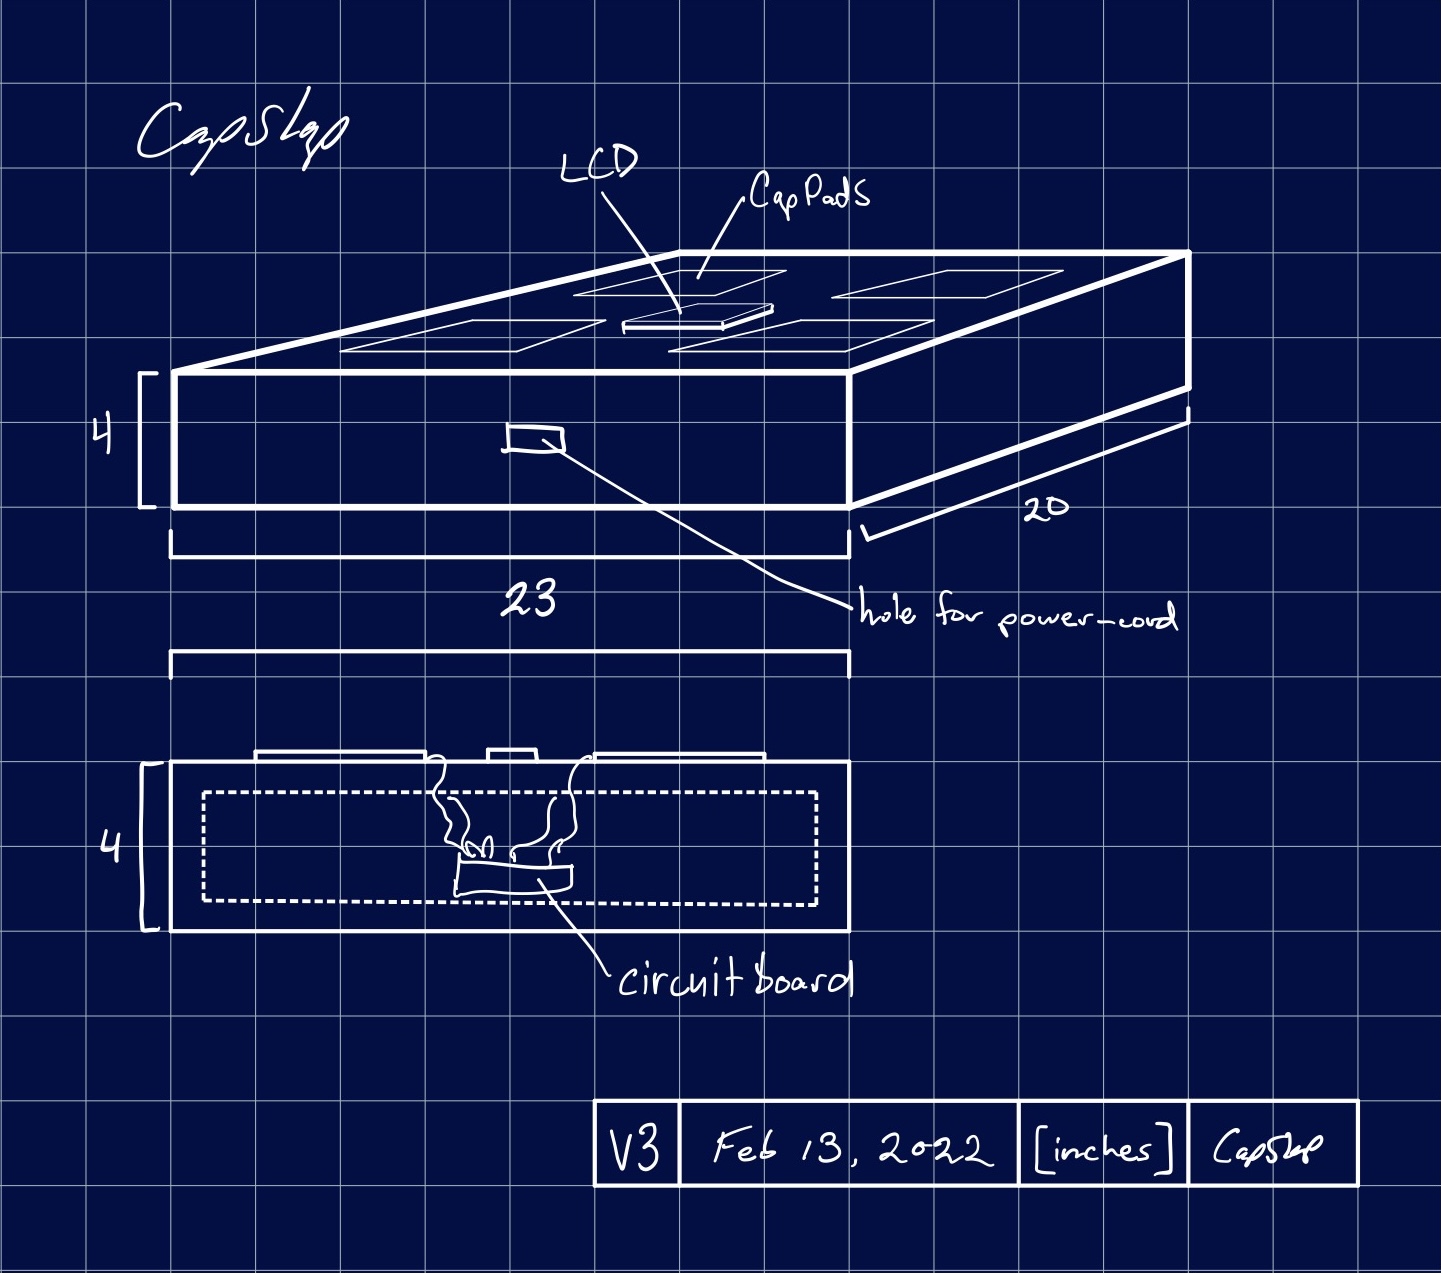 CapSlap
LCD
CapPads
4
20
23
hole for power-cord
4
circuit board
V3
Feb 13, 2022
[inches]
CapSlap